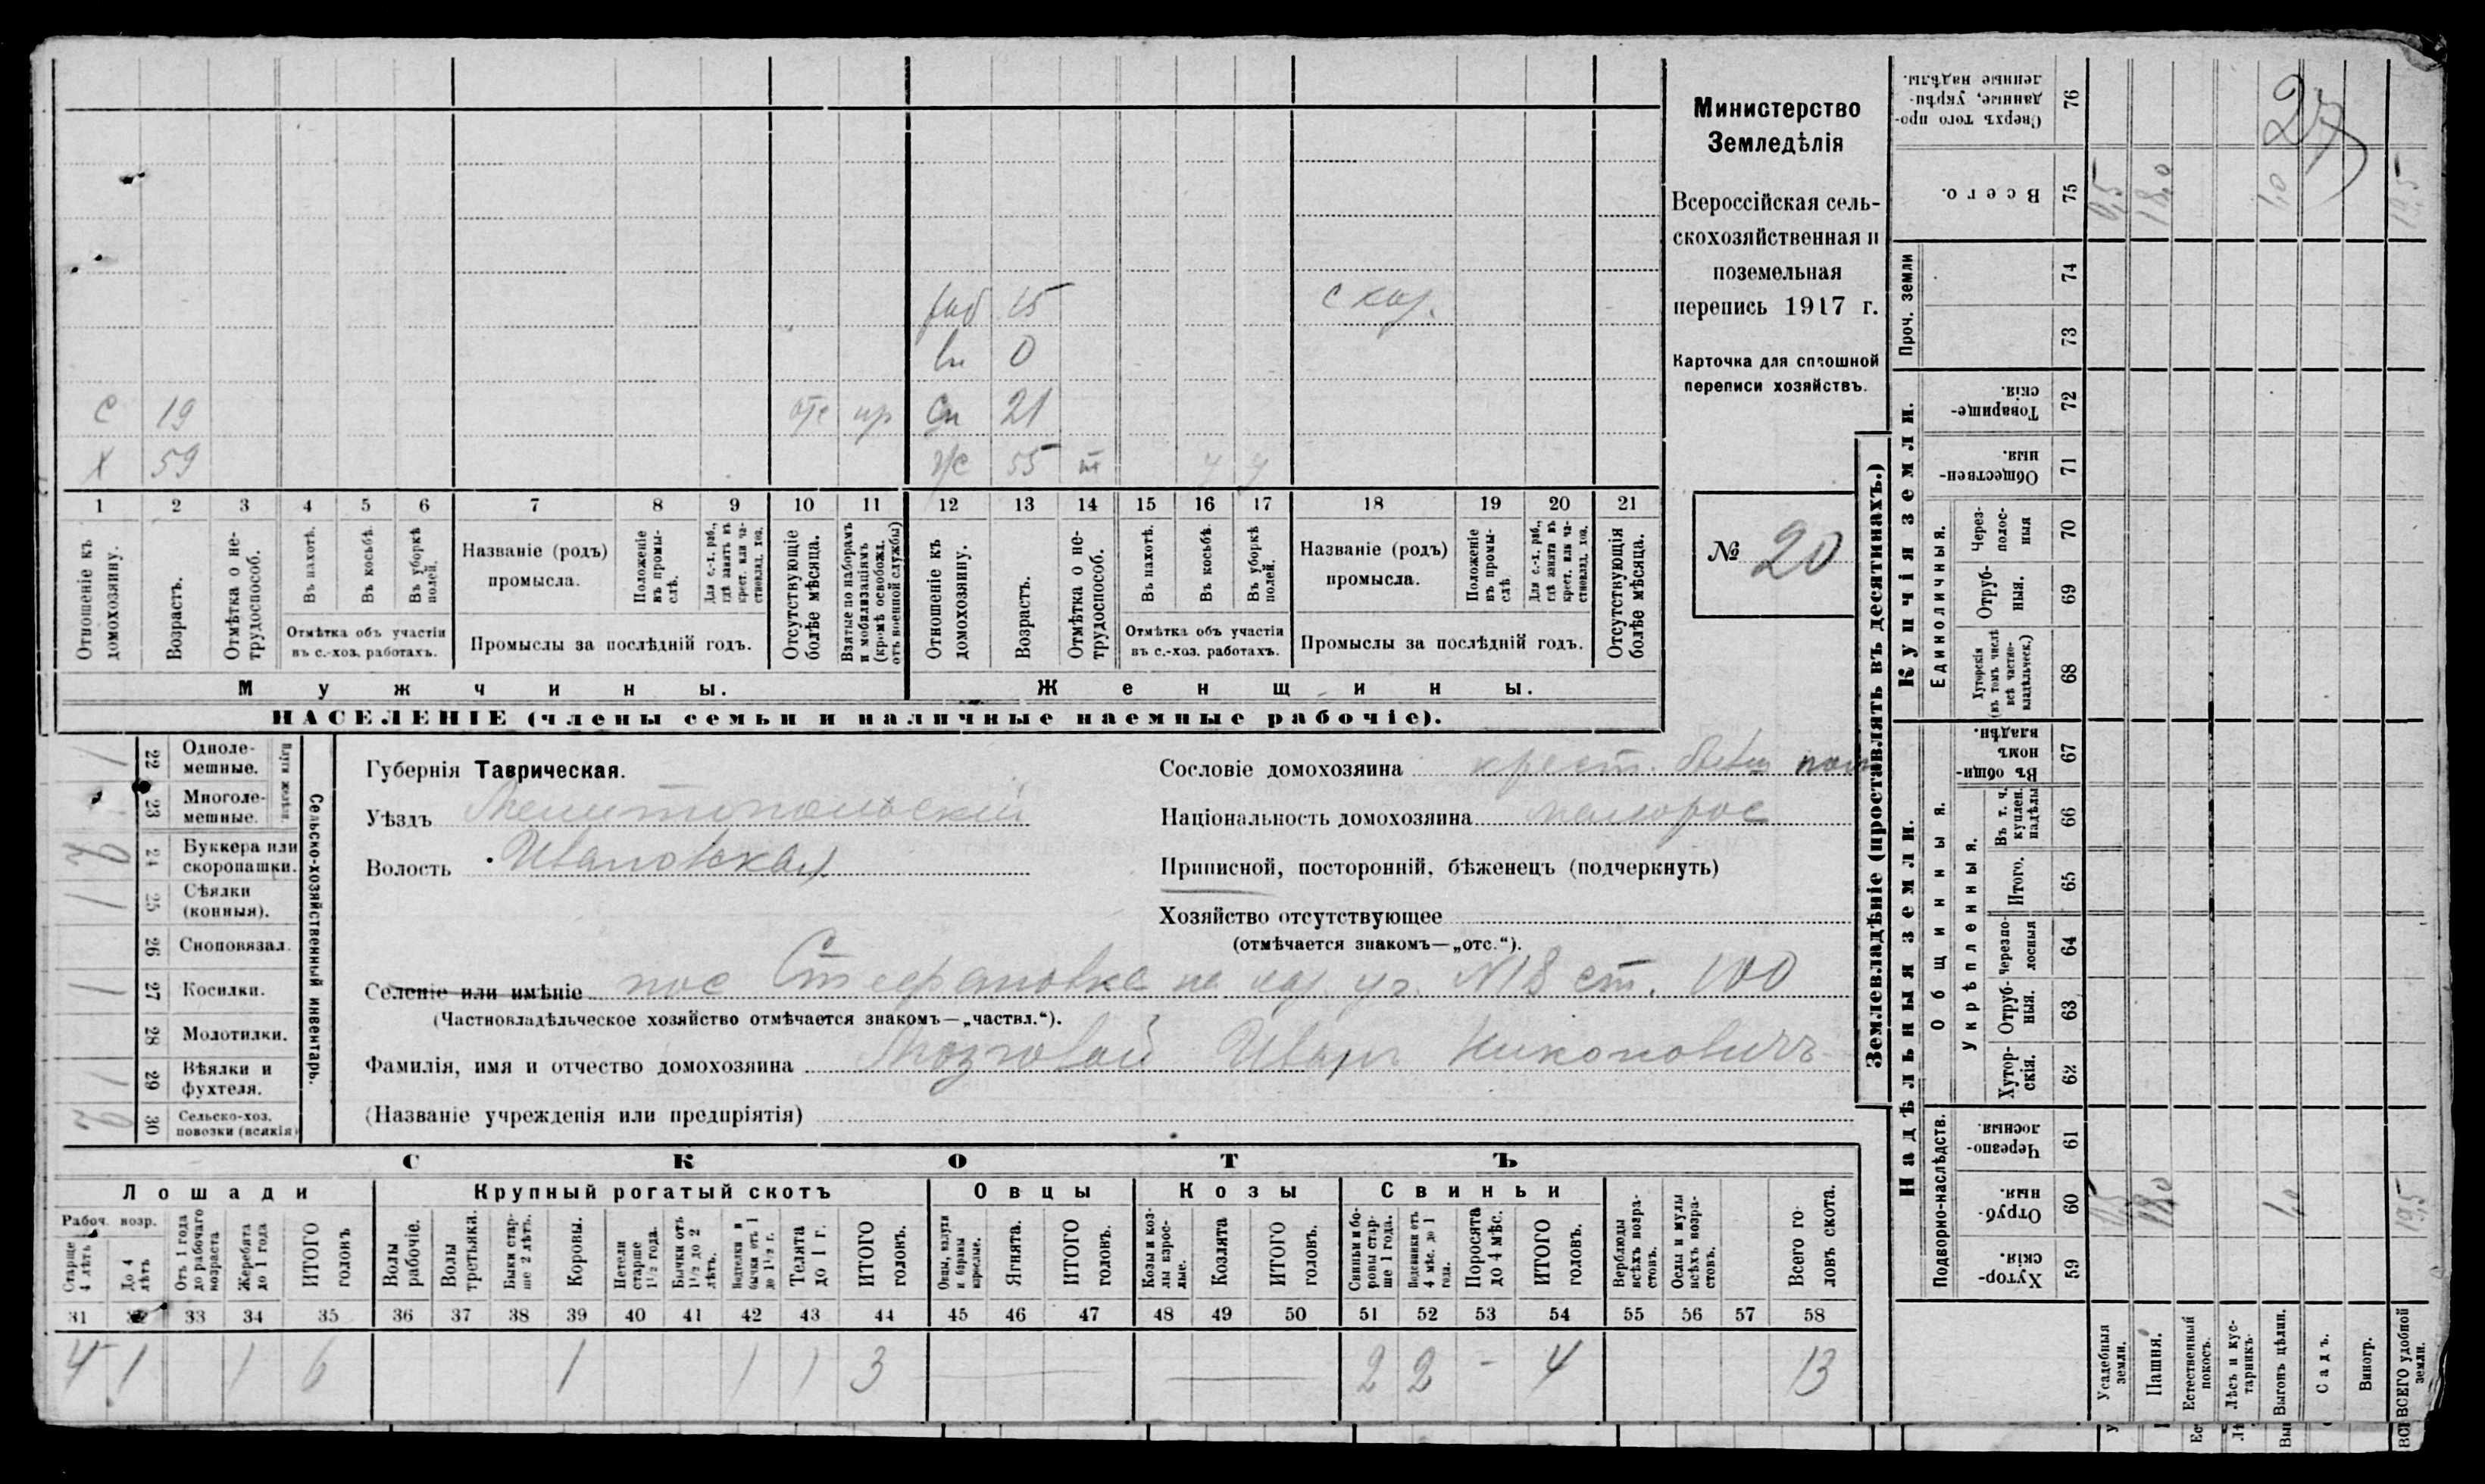 Министерство
Земледѣлія
Всероссійская сель-
скохозяйственная и
поземельная
перепись 1917 г.
Карточка для сплошной
переписи хозяйствъ.
№ 20
27
раб 15 с каз.
0
С 19 отс пр Сн 21
Х 59 ж 55
1 2 3 4 5 6 7 8 9 10 11 12 13 14 15 16 17 18 19 20 21
Отношеніе къ домохозяину.
Возрастъ.
Отмѣтка о не-трудоспособ.
Въ пахотѣ.
Въ косьбѣ
Въ уборкѣ полей.
Отмѣтка объ участіи
въ с.-хоз. работахъ.
Названіе (родъ)
промысла.
Положеніе въ промы-слѣ.
Для с.-х. раб., гдѣ занятъ въ крест. или ча-стновлад. хоз.
Промыслы за послѣдній годъ.
Отсутствующіе болѣе мѣсяца.
Взятые по наборамъ и мобилизаціямъ (кромѣ освобожд. отъ военной службы)
Отношеніе къ домохозяину.
Возрастъ.
Отмѣтка о не-трудоспособ.
Въ пахотѣ.
Въ косьбѣ.
Въ уборкѣ полей.
Отмѣтка объ участіи
въ с.-хоз. работахъ.
Названіе (родъ)
промысла.
Положеніе въ промы-слѣ
Для с.-х. раб., гдѣ занята въ крест. или ча-стновлад. хоз.
Промыслы за послѣдній годъ.
Отсутствующія болѣе мѣсяца.
Мужчины.
Женщины.
НАСЕЛЕНІЕ (члены семьи и наличные наемные рабочіе).
Сельско-хозяйственный инвентарь.
Плуги желѣзн.
1 22 Одноле-мешные.
23 Многоле-мешные.
24 Буккера или скоропашки.
1 25 Сѣялки (конныя).
26 Сноповязал.
1 27 Косилки.
28 Молотилки.
1 29 Вѣялки и фухтеля.
2 30 Сельско-хоз. повозки (всякія)
Губернія Таврическая.
Уѣздъ Мелитопольскій
Волость Ивановская
Сословіе домохозяина крест. бывш пом
Національность домохозяина малорос
Приписной, посторонній, бѣженецъ (подчеркнуть)
Хозяйство отсутствующее
(отмѣчается знакомъ—„отс.“).
Селеніе или имѣніе пос Стефановка на каз. уч. №18 ст. 100
(Частновладѣльческое хозяйство отмѣчается знакомъ—„частвл.“).
Фамилія, имя и отчество домохозяина Мозговой Иванъ Никоновичъ
(Названіе учрежденія или предпріятія)
СКОТЪ
Лошади
Крупный рогатый скотъ
Овцы
Козы
Свиньи
Рабоч. возр.
Старше 4 лѣтъ
До 4 лѣтъ
Отъ 1 года до рабочаго возраста
Жеребята до 1 года
ИТОГО головъ
Волы рабочіе.
Волы третьяки.
Быки стар-ше 2 лѣтъ.
Коровы.
Нетели старше 1½ года.
Бычки отъ 1½ до 2 лѣтъ.
Подтелки и бычки отъ 1 до 1½ г.
Телята до 1 г.
ИТОГО головъ.
Овцы, валухи и бараны взрослые.
Ягнята.
ИТОГО головъ.
Козы и коз-лы взрос-лые.
Козлята
ИТОГО головъ.
Свиньи и бо-ровы стар-ше 1 года.
Подсвинки отъ 4 мѣс. до 1 года.
Поросята до 4 мѣс.
ИТОГО головъ.
Верблюды всѣхъ возра-стовъ.
Ослы и мулы всѣхъ возра-стовъ.
Всего го-ловъ скота.
31 32 33 34 35 36 37 38 39 40 41 42 43 44 45 46 47 48 49 50 51 52 53 54 55 56 57 58
4 1 1 6 1 1 1 3 — — 2 2 - 4 13
Землевладѣніе (проставлять въ десятинахъ.)
Надѣльныя земли.
Купчія земли.
Проч. земли
Подворно-наслѣдств.
Общинныя.
Укрѣпленныя.
Единоличныя.
76 Сверхъ того про-данные, укрѣп-ленные надѣлы.
75 Всего. 0,5 18,0 1,0 19,5
74
73
72 Товарище-скія.
71 Обществен-ныя.
70 Через-полос-ныя
69 Отруб-ныя.
68 Хуторскія (въ томъ числѣ всѣ частно-владѣльческ.)
67 Въ общин-номъ владѣн.
66 Въ т. ч. куплен. надѣлы
65 Итого.
64 Черезпо-лосныя
63 Отруб-ныя.
62 Хутор-скія.
61 Черезпо-лосныя.
60 Отруб-ныя. 0,5 18,0 1,0 19,5
59 Хутор-скія.
Усадебныя земли.
Пашня.
Естественный покосъ.
Лѣсъ и кус-тарникъ.
Выгонъ цѣлин.
Садъ.
Виногр.
ВСЕГО удобной земли.